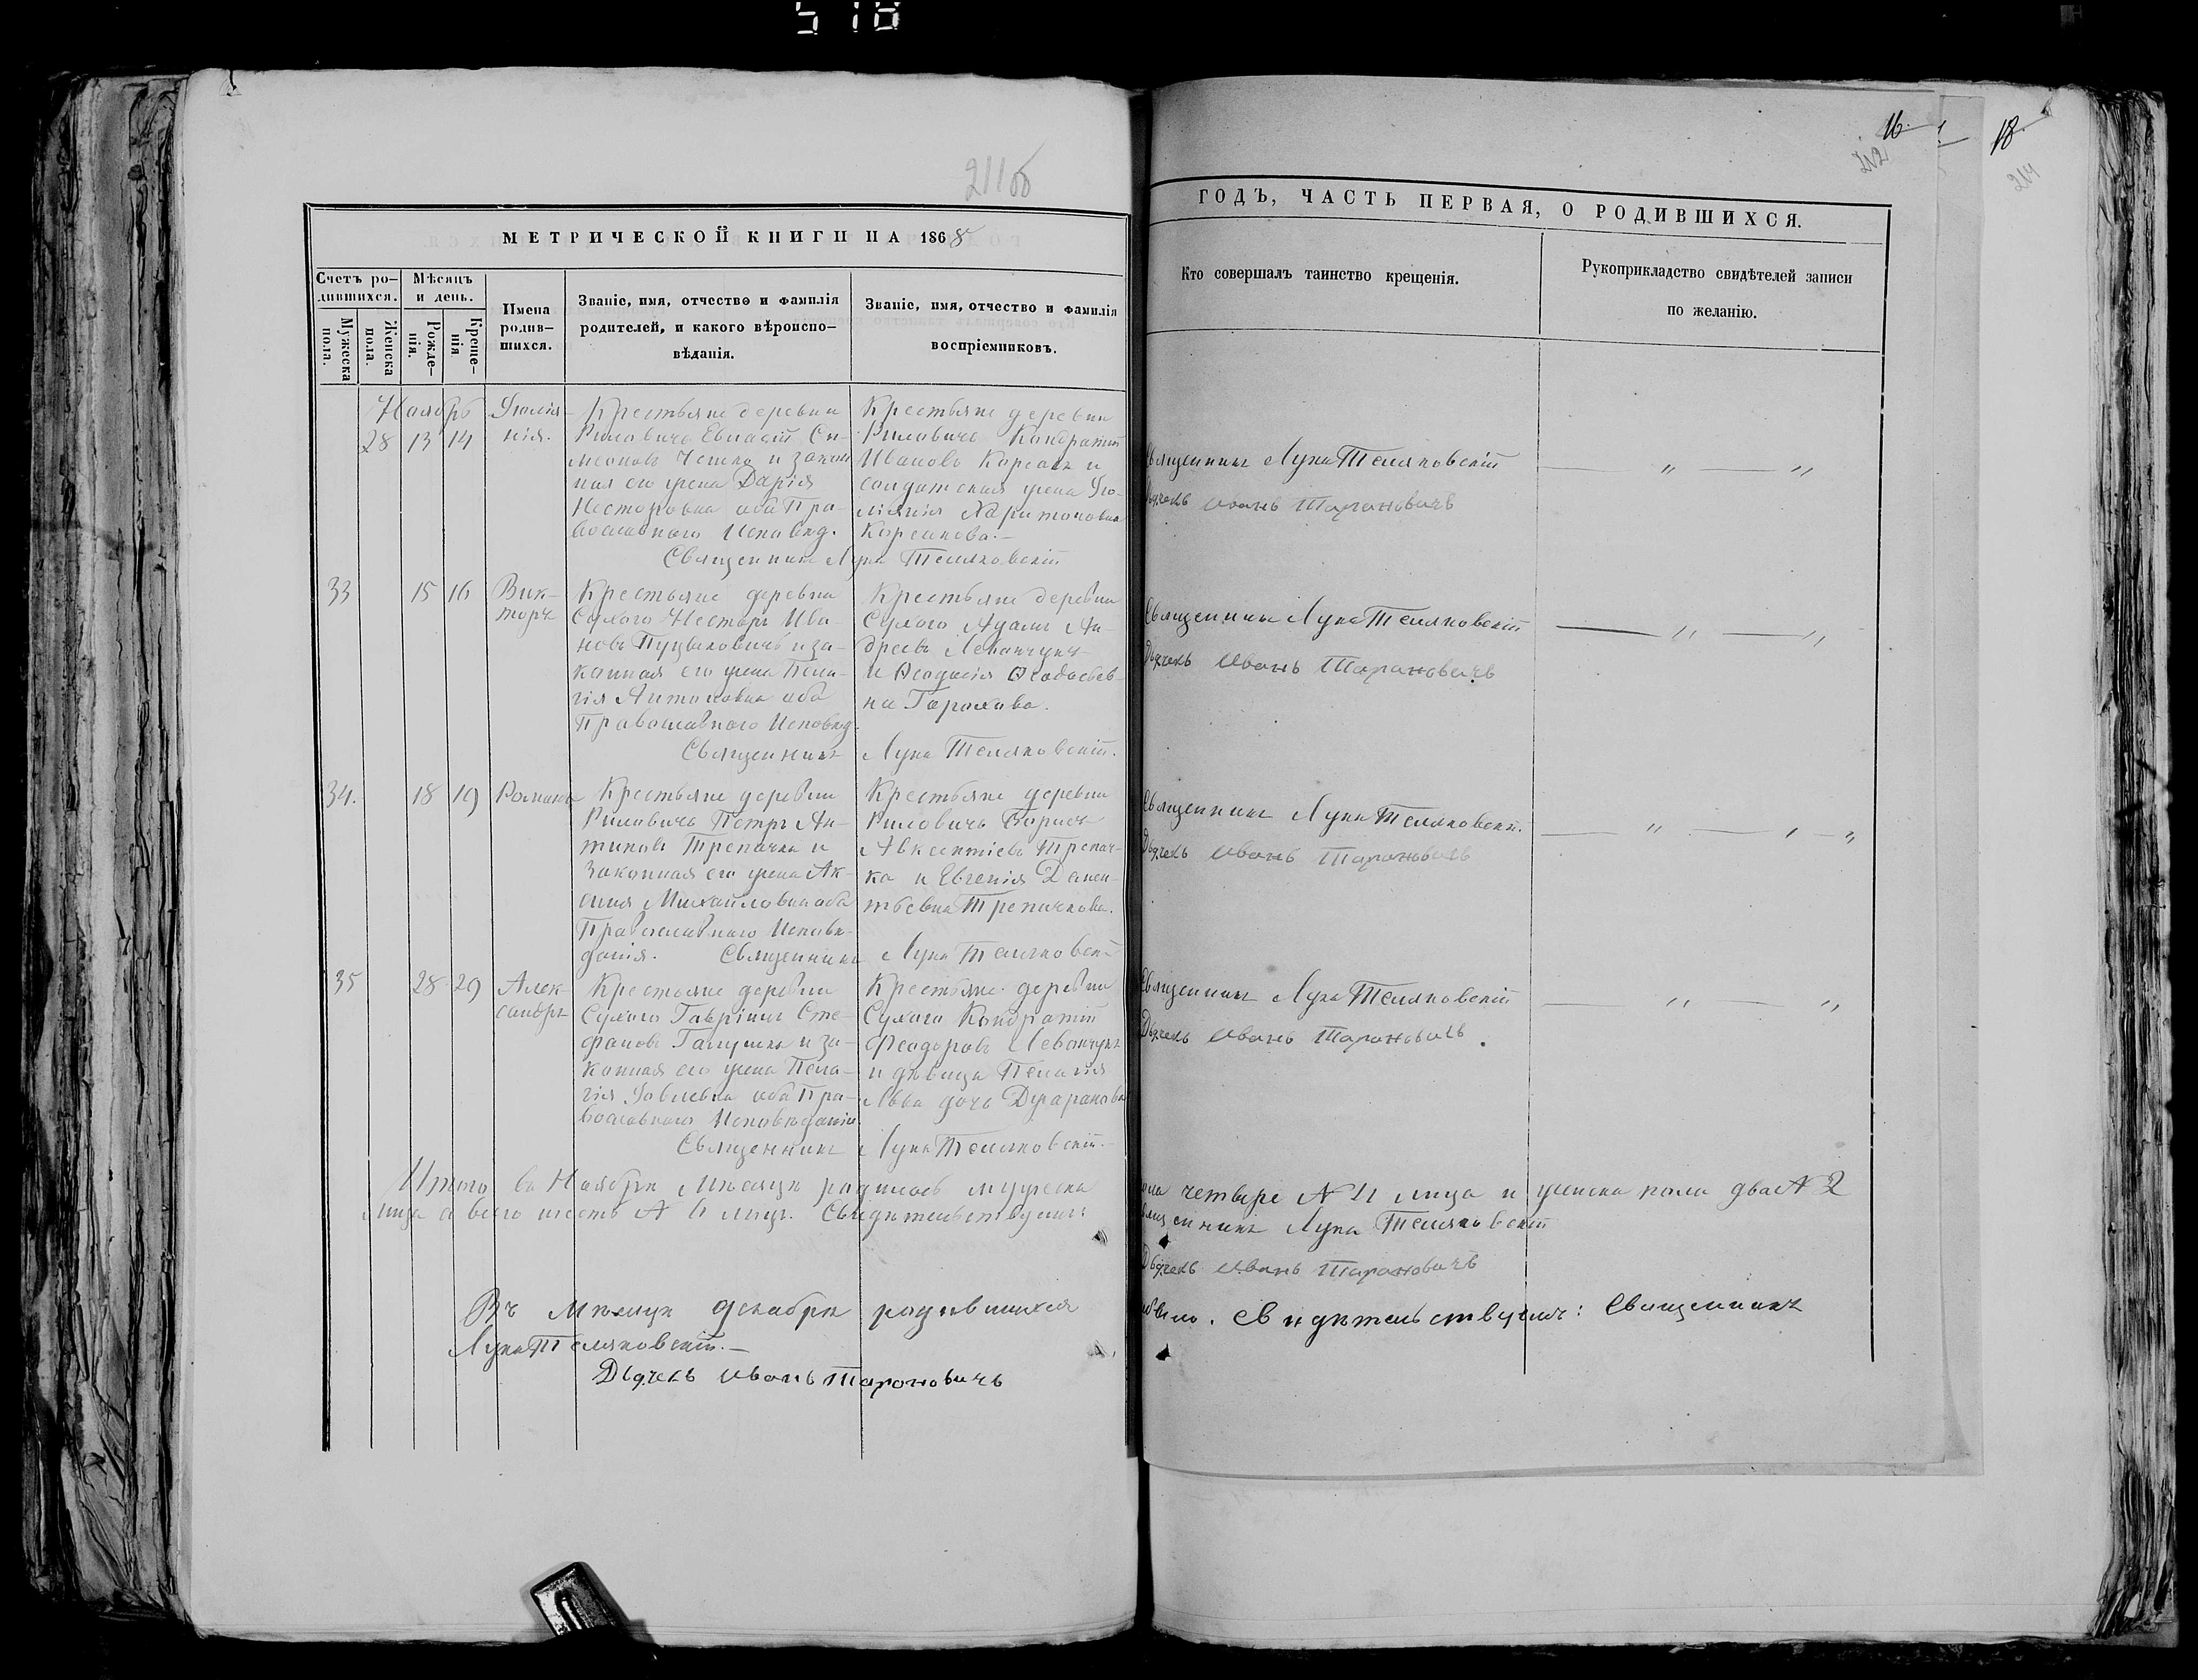 518
211об
16.
18.
212
214
МЕТРИЧЕСКОЙ КНИГИ НА 1868
ГОДЪ, ЧАСТЬ ПЕРВАЯ, О РОДИВШИХСЯ.
Счетъ ро-
дившихся.
Мужеска
пола.
Женска
пола.
Мѣсяцъ
и день.
Рожде-
нія.
Креще-
нія
Имена
родив-
шихся.
Званіе, имя, отчество и фамилія
родителей, и какого вѣроиспо-
вѣданія.
Званіе, имя, отчество и фамилія
воспріемниковъ.
Кто совершалъ таинство крещенія.
Рукоприкладство свидѣтелей записи
по желанію.
Ноябрь
28 13 14
Іулія-
нія.
Крестьяне деревни
Риловичъ Евпатій Си-
меоновъ и закон
ная его жена Дарія
Несторовна оба Пра-
вославнаго Исповѣд.
Крестьяне деревни
Риловичъ Кондратій
Ивановъ Корсакъ и
солдатская жена Іу-
ліянія Харитоновна
Корсакова.-
Священникъ Лука Теляковскій
Священникъ Лука Теляковскій
Дьячекъ Иванъ Тарановичъ
33 15 16
Вик-
торъ
Крестьяне деревни
Сухого Несторъ Ива-
новъ и за-
конная его жена Пела-
гія Антоновна оба
Православнаго Исповѣд.
Крестьяне деревни
Сухого Адамъ Ан-
дреевъ Леванчукъ
и Ѳеодосія
на Горохова.
Священникъ Лука Теляковскій.
Священникъ Лука Теляковскій
Дьячекъ Иванъ Тарановичъ
34. 18 19
Романъ
Крестьяне деревни
Риловичъ Петръ Ан-
типовъ Трепачка и
законная его жена Ак-
синія Михайловна оба
Православнаго Исповѣ-
данія.
Крестьяне деревни
Риловичъ Борисъ
Авксентіевъ Трепач-
ка и Евгенія Демен-
тьевна Трепачкова.
Священникъ Лука Теляковскій
Священникъ Лука Теляковскій.
Дьячекъ Иванъ Тарановичъ
35 28 29
Алек-
сандръ
Крестьяне деревни
Сухого Гавріилъ Сте-
фановъ Галушка и за-
конная его жена Пела-
гія Іовлевна оба Пра-
вославнаго Исповѣданія.
Крестьяне деревни
Сухого Кондратій
Феодоровъ Леванчукъ
и дѣвица Пелагія
Львова дочь
Священникъ Лука Теляковскій.
Священникъ Лука Теляковскій
Дьячекъ Иванъ Тарановичъ.
Итого въ Ноябрѣ Мѣсяцѣ родилось мужеска пола четыре № 4 лица и женска пола два № 2
лица а всего шесть № 6 лицъ. Свидѣтельствуемъ: Священникъ Лука Теляковскій
Дьячекъ Иванъ Тарановичъ
Въ Мѣсяцѣ декабрѣ родившихся небыло. Свидѣтельствуемъ: Священникъ
Лука Теляковскій.-
Дьячекъ Иванъ Тарановичъ